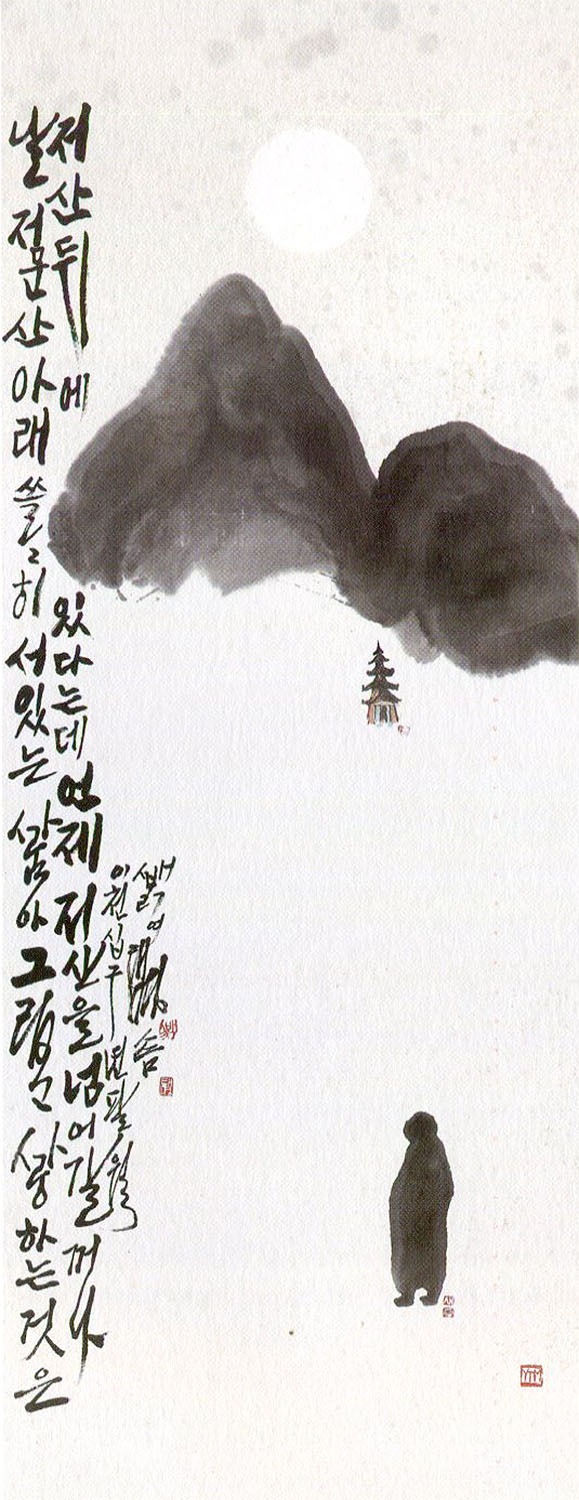 날 저문 산 아래 쓸쓸히 서있는 사람아 그립고 사랑하는 것은
저 산 뒤에 있다는데 언제 저 산을 넘어갈꺼나
이천십구년 팔월